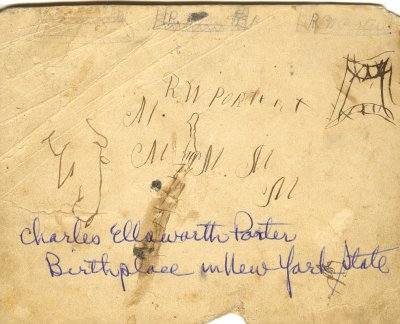 R W PORTER
M.
M M. M
M
Charles Ellsworth Porter
Birthplace in New York State